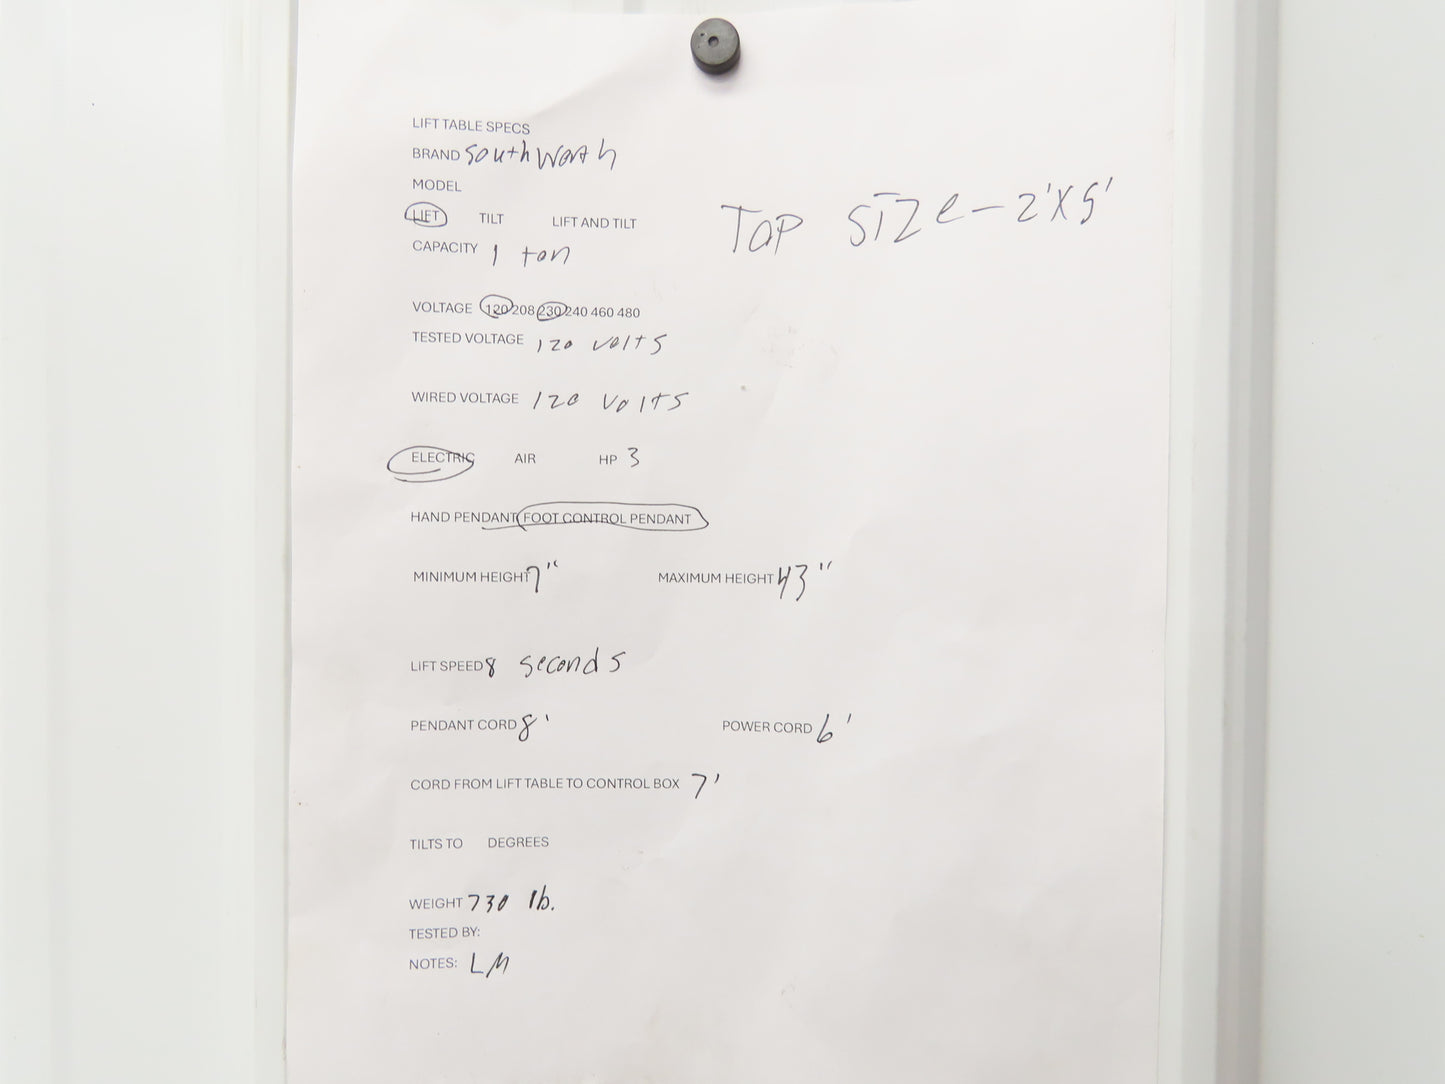 LIFT TABLE SPECS
BRAND Southworth
MODEL
LIFT TILT LIFT AND TILT
TOP SIZE - 2' X 5'
CAPACITY 1 ton
VOLTAGE 120 208 230 240 460 480
TESTED VOLTAGE 120 volts
WIRED VOLTAGE 120 volts
ELECTRIC AIR HP 3
HAND PENDANT FOOT CONTROL PENDANT
MINIMUM HEIGHT 7" MAXIMUM HEIGHT 43"
LIFT SPEED 8 seconds
PENDANT CORD 8' POWER CORD 6'
CORD FROM LIFT TABLE TO CONTROL BOX 7'
TILTS TO DEGREES
WEIGHT 730 lb.
TESTED BY:
NOTES: LM